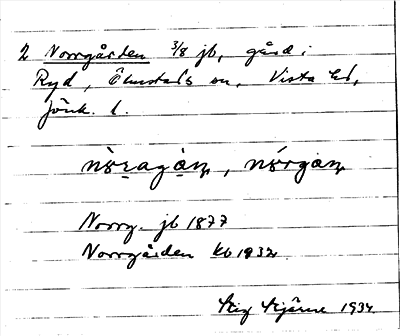 2 Norrgården 3/8 jb, gård i
Ryd, Ölmstads sn, Vista hd,
Jönk. l.
Norrg. jb 1877
Norrgården kb 1932
Stig Stjärne 1934